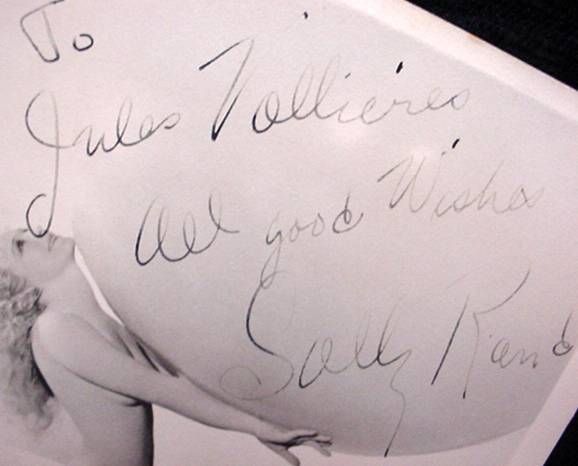 To
Jules Vollieres
All good Wishes
Sally Rand